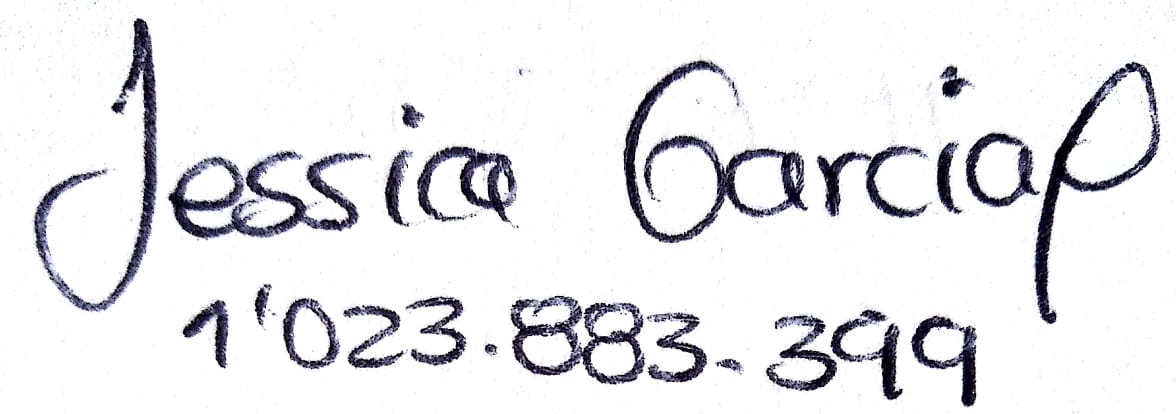 Jessica Garcia P
1'023.883.399